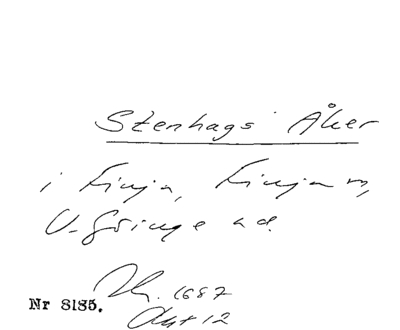 Stenhags Åker
i Finja, Finja sn,
V. Göinge hd.
Nr 8135. 1687
Akt 12